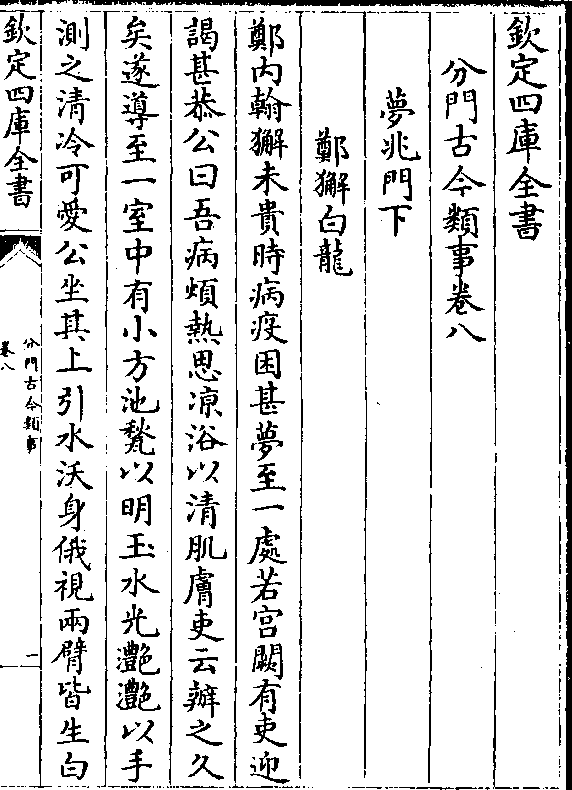 欽定四庫全書
分門古今類事卷八
夢兆門下
鄭獬白龍
鄭内翰獬未貴時病疫困甚夢至一處若宮闕有吏迎
謁甚恭公曰吾病煩熱思凉浴以清肌膚吏云辦之久
矣遂導至一室中有小方池甃以明玉水光灔灔以手
測之清冷可愛公坐其上引水沃身俄視兩臂皆生白
欽定四庫全書
分門古今類事
卷八
一